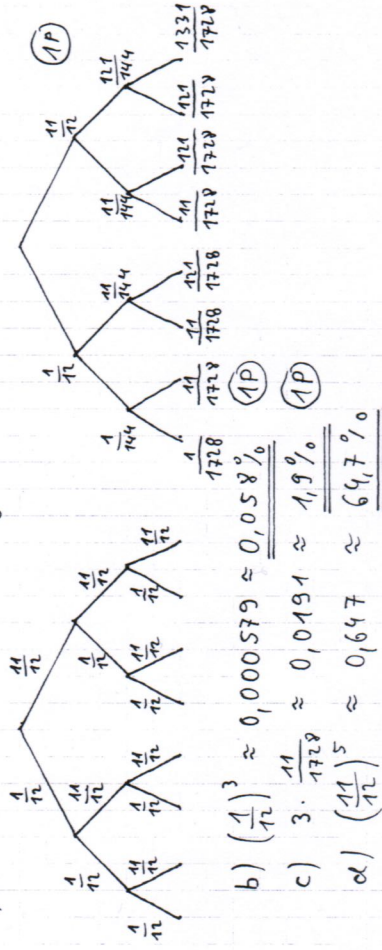 1/12 11/12
1/12 11/12 1/12 11/12
1/12 11/12 1/12 11/12 1/12 11/12 1/12 11/12
1/12 11/12 (1P)
1/144 11/144 11/144 121/144
1/1728 11/1728 11/1728 121/1728 11/1728 121/1728 121/1728 1331/1728
b) (1/12)³ ≈ 0,000579 ≈ 0,058% (1P)
c) 3 · 11/1728 ≈ 0,0191 ≈ 1,9% (1P)
d) (11/12)⁵ ≈ 0,647 ≈ 64,7%